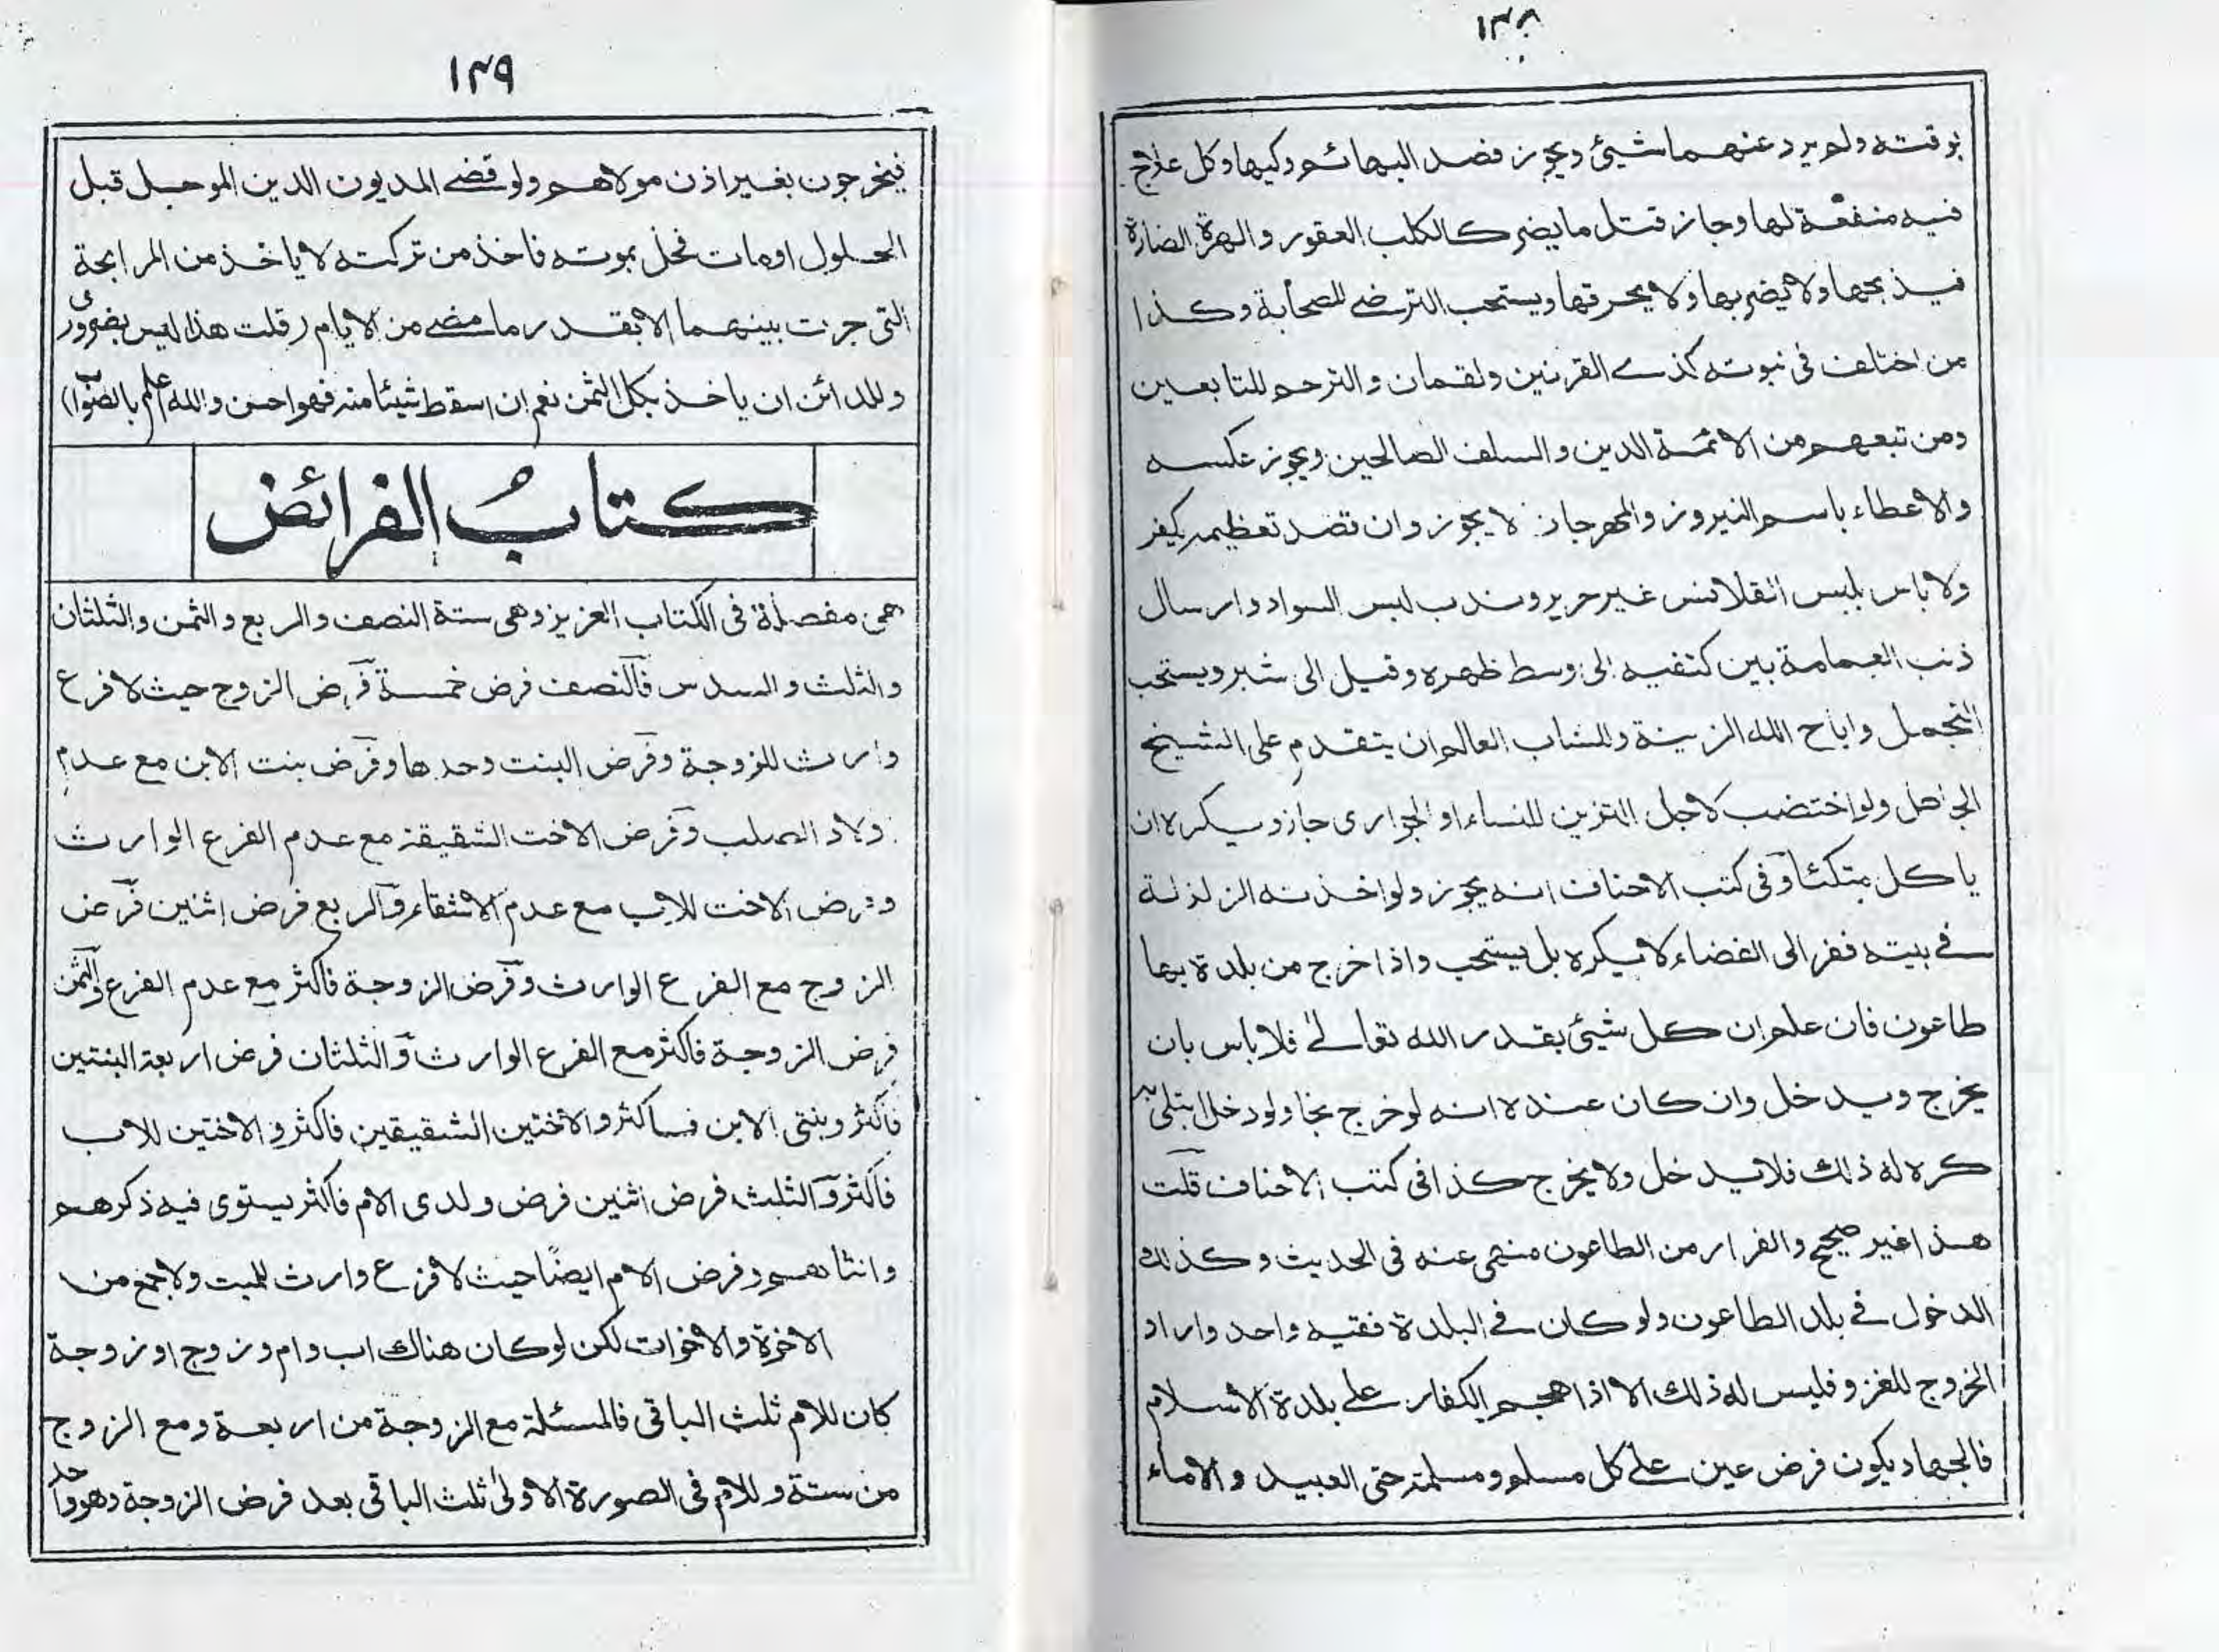 ١٤٨
بوقته ولم يرد عنهما شيئ ويجوز فصد البهائم وكيها وكل علاج
فيه منفعة لها وجاز قتل ما يضر كالكلب العقور والهرة الضارة
فيذبحها ولا يضربها ولا يحرقها ويستحب الترضي للصحابة وكذا
من اختلف في نبوته كذي القرنين ولقمان والترحم للتابعين
ومن تبعهم من الائمة الدين والسلف الصالحين ويجوز عكسه
والاعطاء باسم النيروز والمهرجان لا يجوز وان قصد تعظيمه يكفر
ولا باس بلبس القلانس غير حرير وندب لبس السواد وارسال
ذنب العمامة بين كتفيه الى وسط ظهره وقيل الى شبر ويستحب
التجمل واباح الله الزينة وللشاب العالم ان يتقدم على الشيخ
الجاهل ولو اختضب لاجل التزين للنساء او الجواري جاز ويكره ان
ياكل متكئا وفي كتب الاحناف انه يجوز ولو اخذته الزلزلة
في بيته ففر الى الفضاء لا يكره بل يستحب واذا خرج من بلدة بها
طاعون فان علم ان كل شيئ بقدر الله تعالى فلا باس بان
يخرج ويدخل وان كان عنده انه لو خرج نجا ولو دخل ابتلي به
كره له ذلك فلا يدخل ولا يخرج كذا في كتب الاحناف قلت
هذا غير صحيح والفرار من الطاعون منهي عنه في الحديث وكذلك
الدخول في بلد الطاعون ولو كان في البلدة فقيه واحد واراد
الخروج للغزو فليس له ذلك الا اذا هجم الكفار على بلدة الاسلام
فالجهاد يكون فرض عين على كل مسلم ومسلمة حتى العبيد والاماء
١٤٩
فيخرجون بغير اذن مولاهم ولو قضى المديون الدين الموجل قبل
الحلول او مات فحل بموته فاخذ من تركته لا ياخذ من المرابحة
التي جرت بينهما الا بقدر ما مضى من الايام (قلت هذا ليس بضروري
وللدائن ان ياخذ بكل الثمن نعم ان اسقط شيئا منه فهو احسن والله اعلم بالصواب)
كتابُ الفرائض
هي مفصلة في الكتاب العزيز وهي ستة النصف والربع والثمن والثلثان
والثلث والسدس فالنصف فرض خمسة فرض الزوج حيث لا فرع
وارث للزوجة وفرض البنت وحدها وفرض بنت الابن مع عدم
اولاد الصلب وفرض الاخت الشقيقة مع عدم الفرع الوارث
وفرض الاخت للاب مع عدم الاشقاء والربع فرض اثنين فرض
الزوج مع الفرع الوارث وفرض الزوجة فاكثر مع عدم الفرع والثمن
فرض الزوجة فاكثر مع الفرع الوارث والثلثان فرض اربعة البنتين
فاكثر وبنتي الابن فاكثر والاختين الشقيقتين فاكثر والاختين للاب
فاكثر والثلث فرض اثنين فرض ولدى الام فاكثر يستوى فيه ذكرهم
وانثاهم وفرض الام ايضًا حيث لا فرع وارث للميت ولا جمع من
الاخوة والاخوات لكن لو كان هناك اب وام وزوج او زوجة
كان للام ثلث الباقى فالمسئلة مع الزوجة من اربعة ومع الزوج
من ستة وللام فى الصورة الاولى ثلث الباقى بعد فرض الزوجة وهو واحد